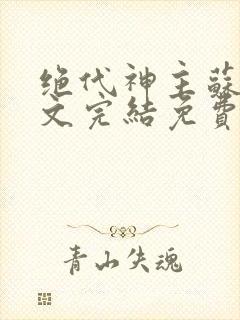 绝代神主蘇
文完結免費
青山失魂